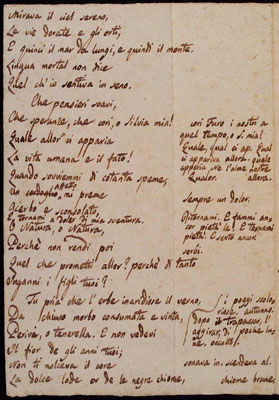 Mirava il ciel sereno,
Le vie dorate e gli orti,
E quinci il mar da lungi, e quindi il monte.
Lingua mortal non dice
Quel ch'io sentiva in seno.
Che pensieri soavi,
Che speranze, che cori, o Silvia mia!
Quale allor ci apparia
La vita umana e il fato!
Quando sovviemmi di cotanta speme,
Un affetto mi preme
Acerbo e sconsolato,
E tornami a doler di mia sventura.
O Natura, o Natura,
Perchè non rendi poi
Quel che prometti allor? perchè di tanto
Inganni i figli tuoi?
Tu pria che l'erbe inaridisse il verno,
Da chiuso morbo consumata e vinta,
Perivi, o tenerella. E non vedevi
Il fior de gli anni tuoi;
Non ti molceva il core
La dolce lode or de le negre chiome,
cori furo i nostri a
quel tempo, o S. mia!
Quale, qual ci ap. Qual
ci appariva allora. quale
Qualor. allora.
Sempre un dolor.
E fammi
cor pietà
pietà. E sento
sonava in. scendeva al.
chiome brune.